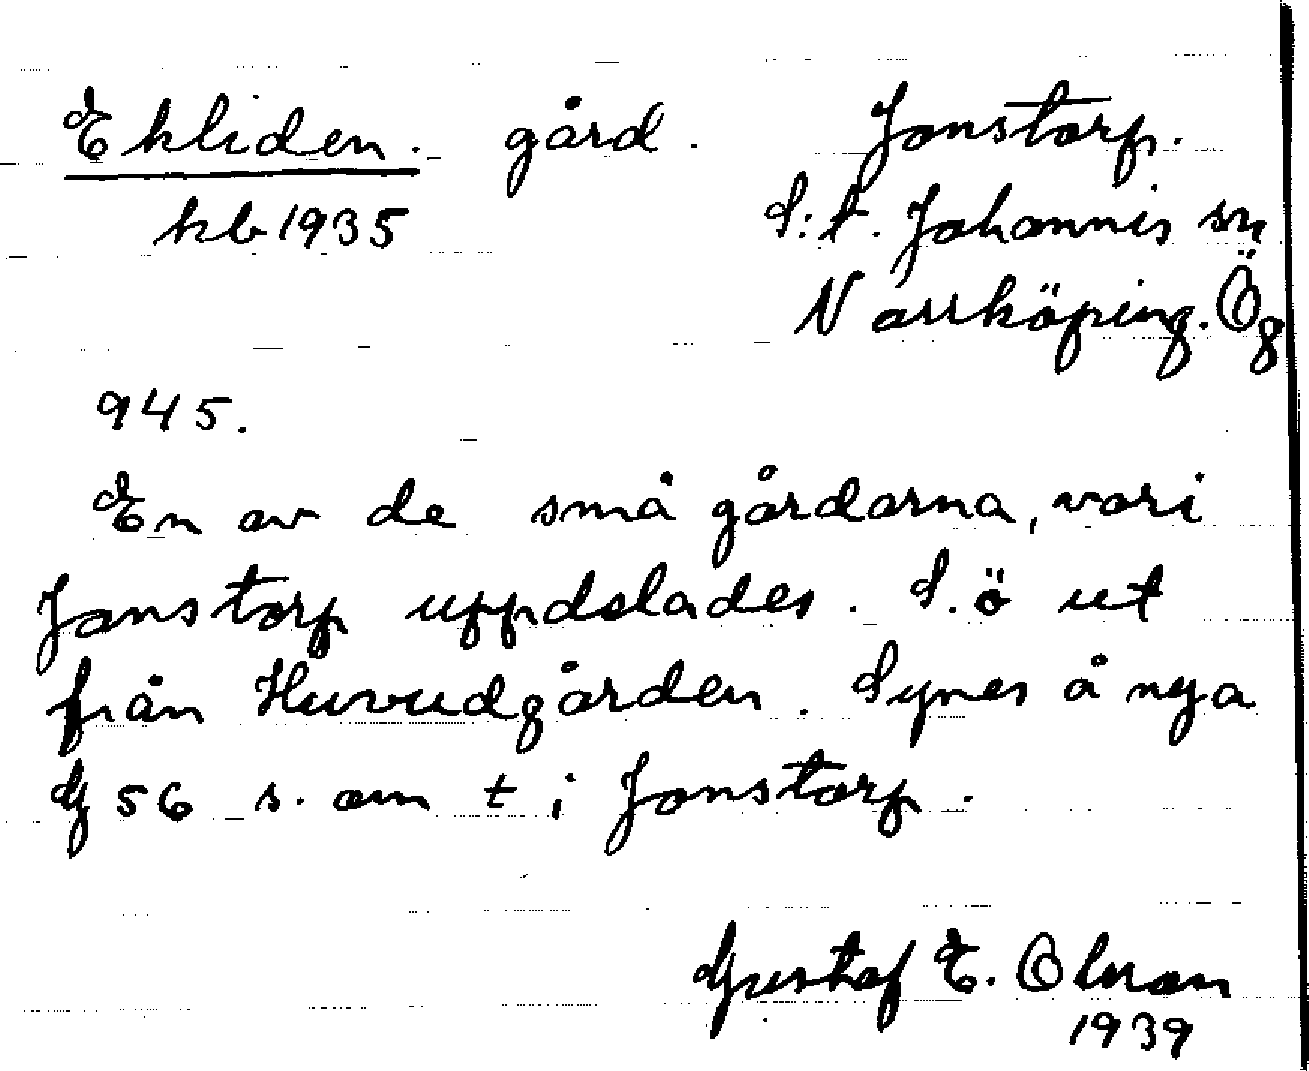 Ekliden. gård. Jonstorp.
kb 1935 S:t. Johannis sn
Norrköping. Ög
945.
En av de små gårdarna, vari
Jonstorp uppdelades. S. ö ut
från Huvudgården. Synes å nya
G 56 s. om t i Jonstorp.
Gustaf E. Olman
1939